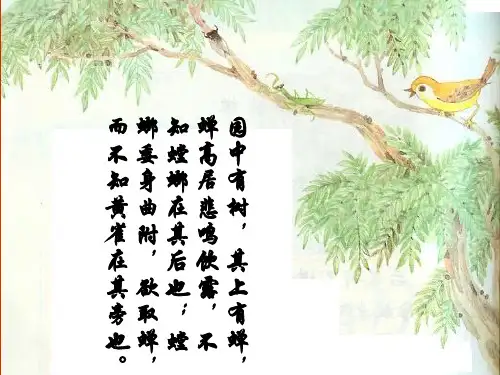 园中有树，其上有蝉，
蝉高居悲鸣饮露，不
知螳螂在其后也；螳
螂委身曲附，欲取蝉，
而不知黄雀在其旁也。